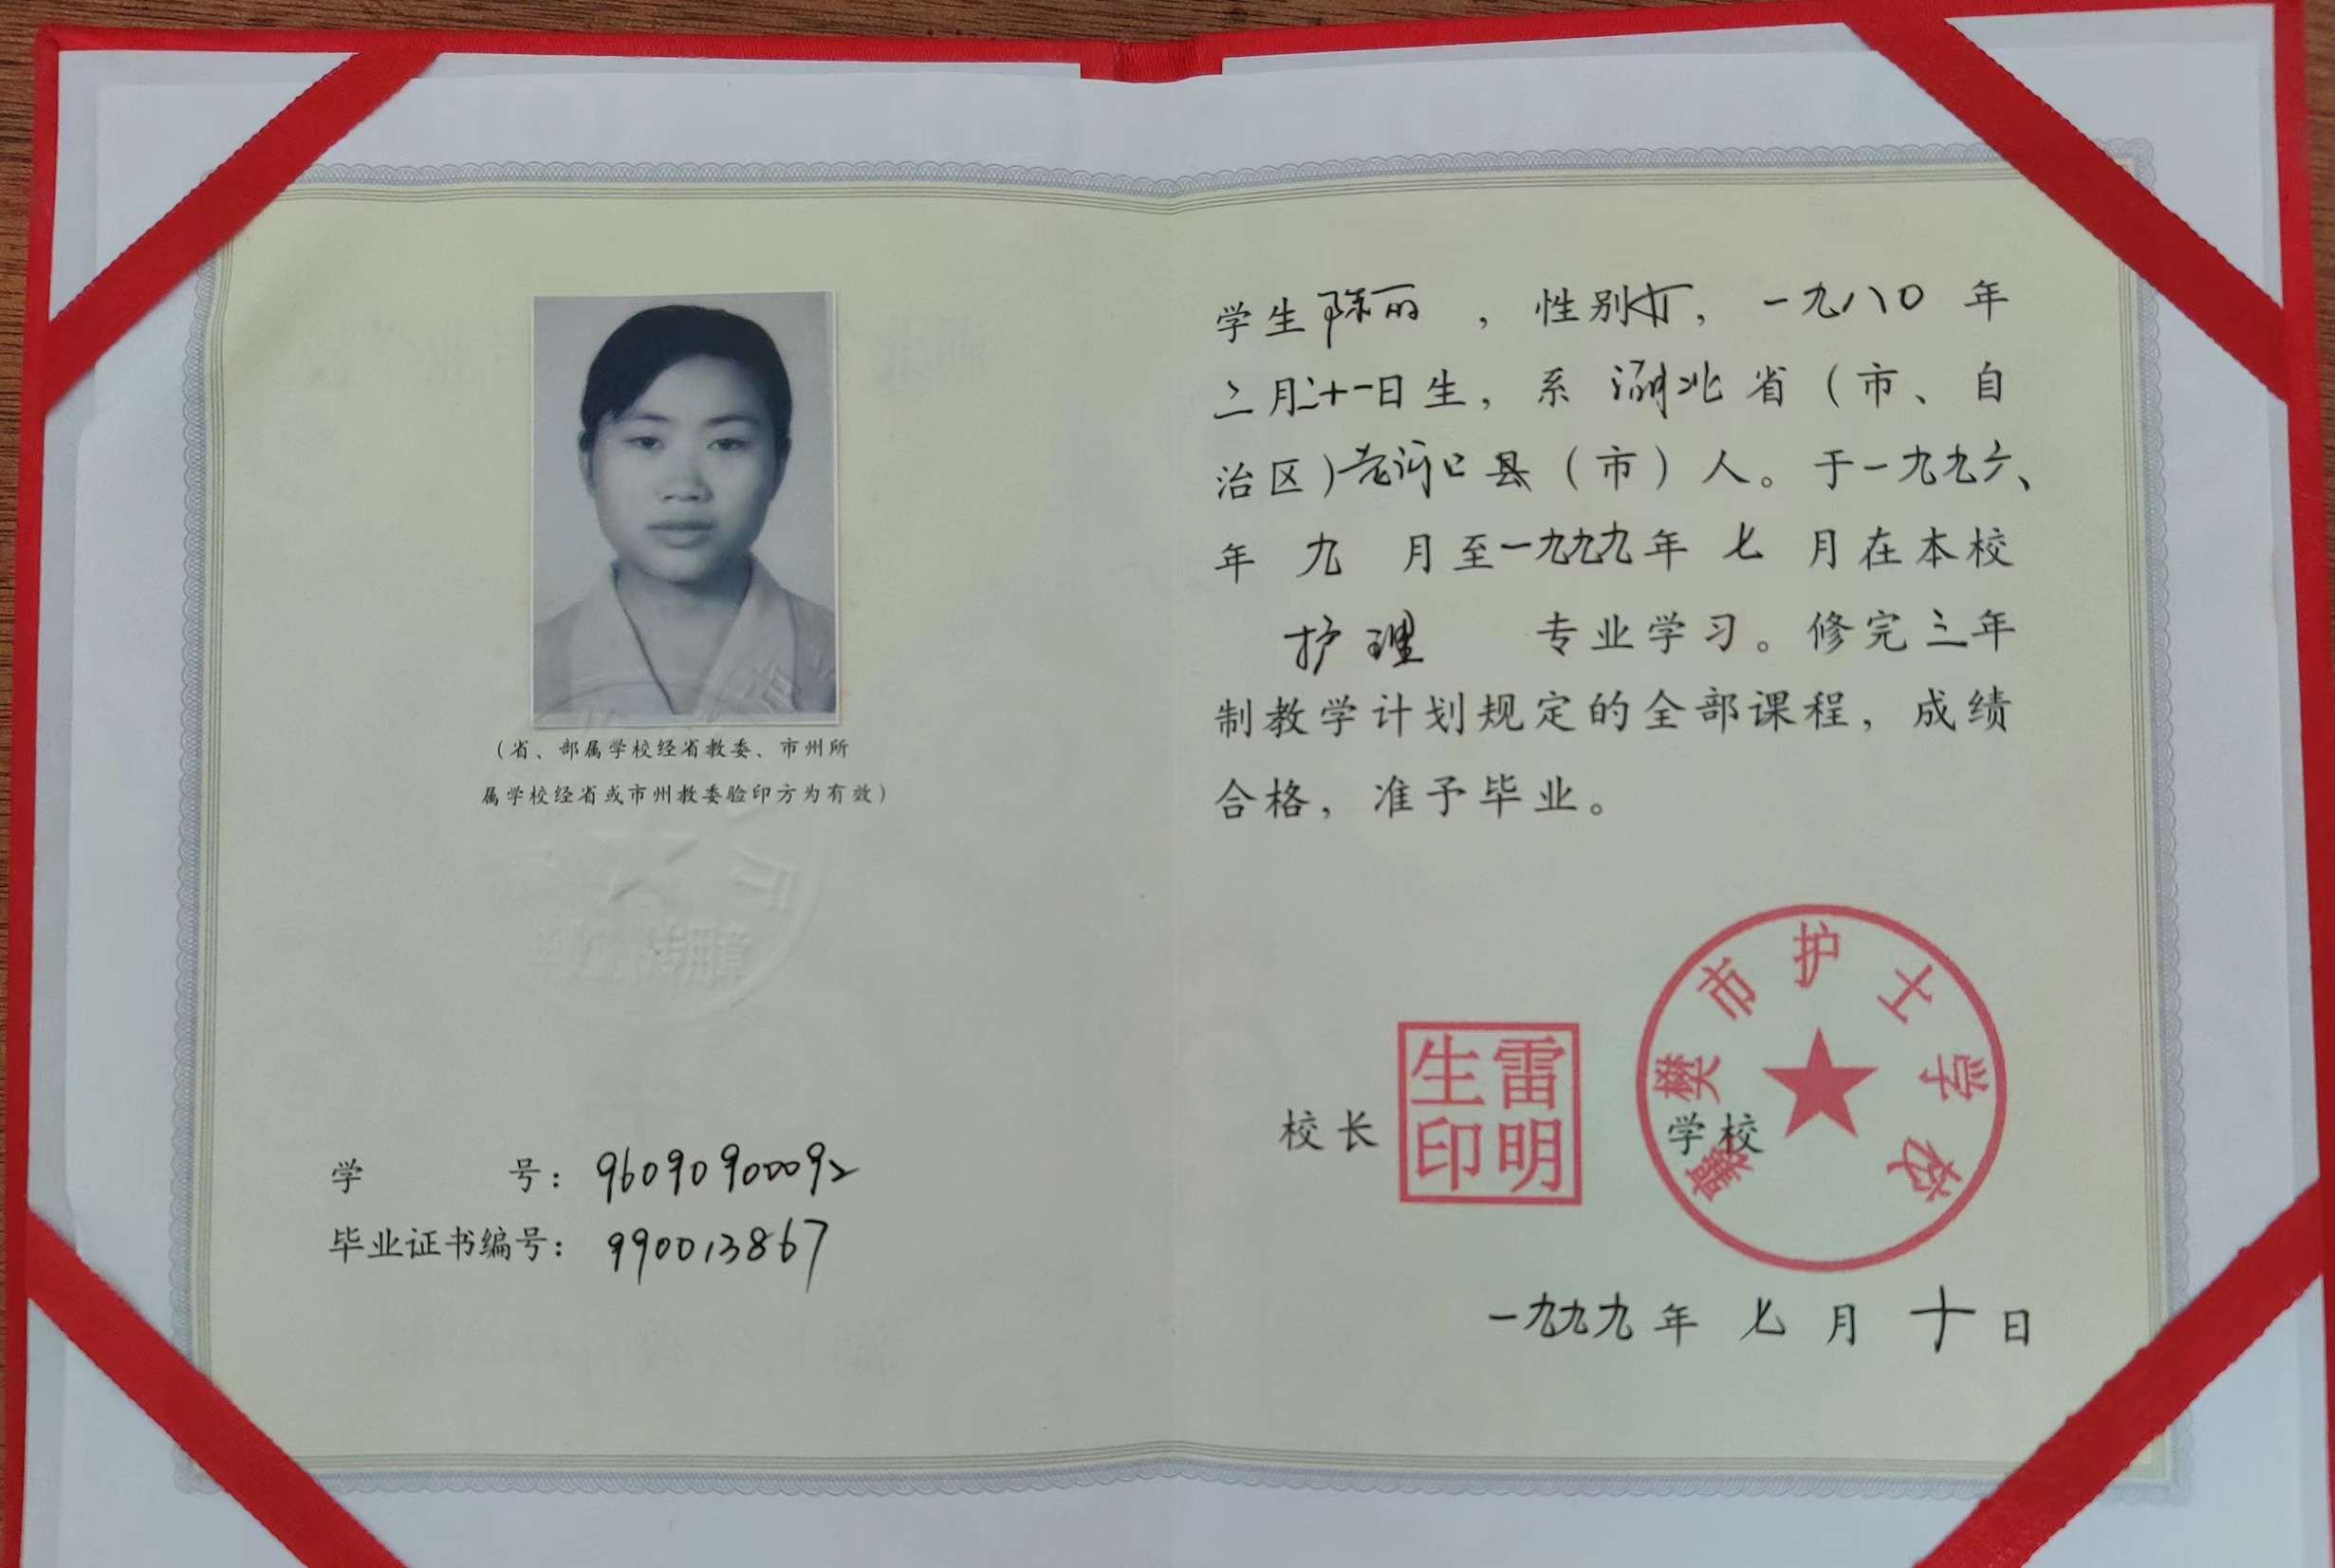 （省、部属学校经省教委、市州所
属学校经省或市州教委验印方为有效）
学 号：96090900092
毕业证书编号：990013867
学生陈丽，性别女，一九八〇年
二月二十一日生，系湖北省（市、自
治区）老河口县（市）人。于一九九六
年九月至一九九九年七月在本校
护理 专业学习。修完三年
制教学计划规定的全部课程，成绩
合格，准予毕业。
校长
雷明生印
学校
襄樊市护士学校
一九九九年七月十日